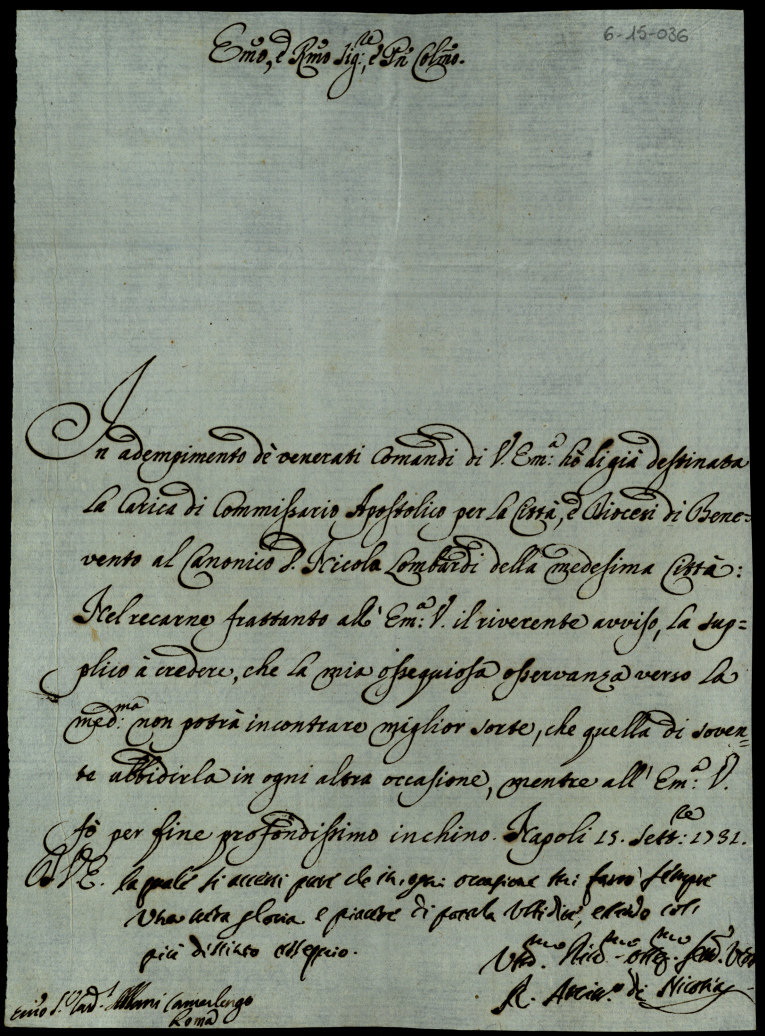 6-15-036
Emo, e Rmo Sig:re, e Pñ Colmo.
In adempimento dè venerati Comandi di V. Em:a hò di già destinata
La Carica di Commissario Apostolico per la Città, e Diocesi di Bene=
vento al Canonico D. Nicola Lombardi della medesima Città:
Nel recarne frattanto all' Em:a V. il riverente avviso, La sup=
plico à credere, che La mia ossequiosa osservanza verso La
med:ma non potrà incontrare miglior sorte, che quella di soven=
te ubbidirla in ogni altra occasione, mentre all' Em:a V.
fò per fine profondissimo inchino. Napoli 15. Sett:re 1731.
Di V.E. la quale si accerti pure che in ogni occasione mi farrò sempre
una vera gloria e piacere di poterla ubbidire, essendo col
più distinto ossequio.
Arciv.o di Nicosia
Emo S.r Card.l Albani Camerlengo
Roma